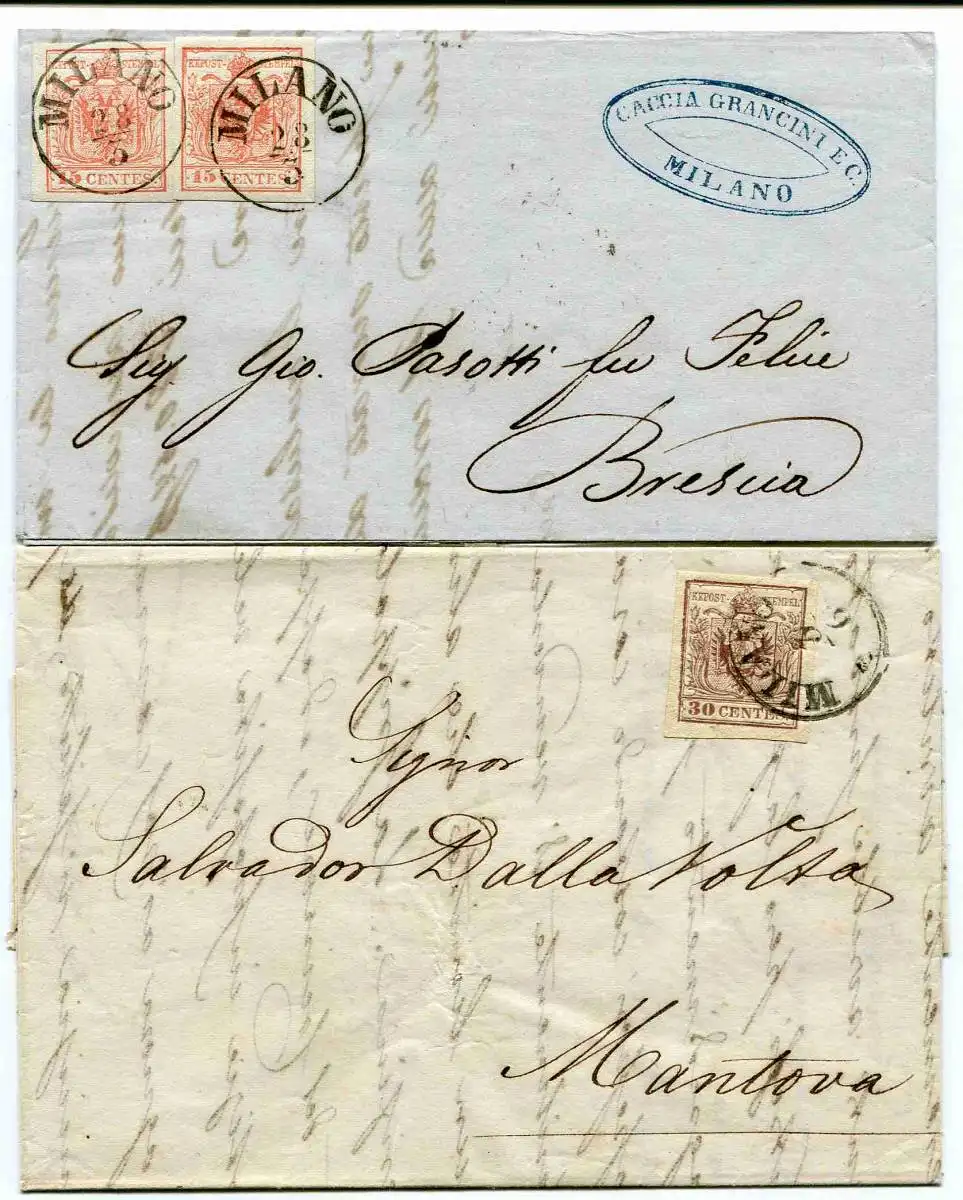 KKPOST-STEMPEL
15 CENTES
MILANO
28
5
KKPOST-STEMPEL
15 CENTES
MILANO
28
5
CACCIA GRANCINI E C.
MILANO
Sig. Gio. Pasotti fu Felice
Brescia
KKPOST-STEMPEL
30 CENTES
MILANO
Signor
Salvador Dalla Volta
Mantova